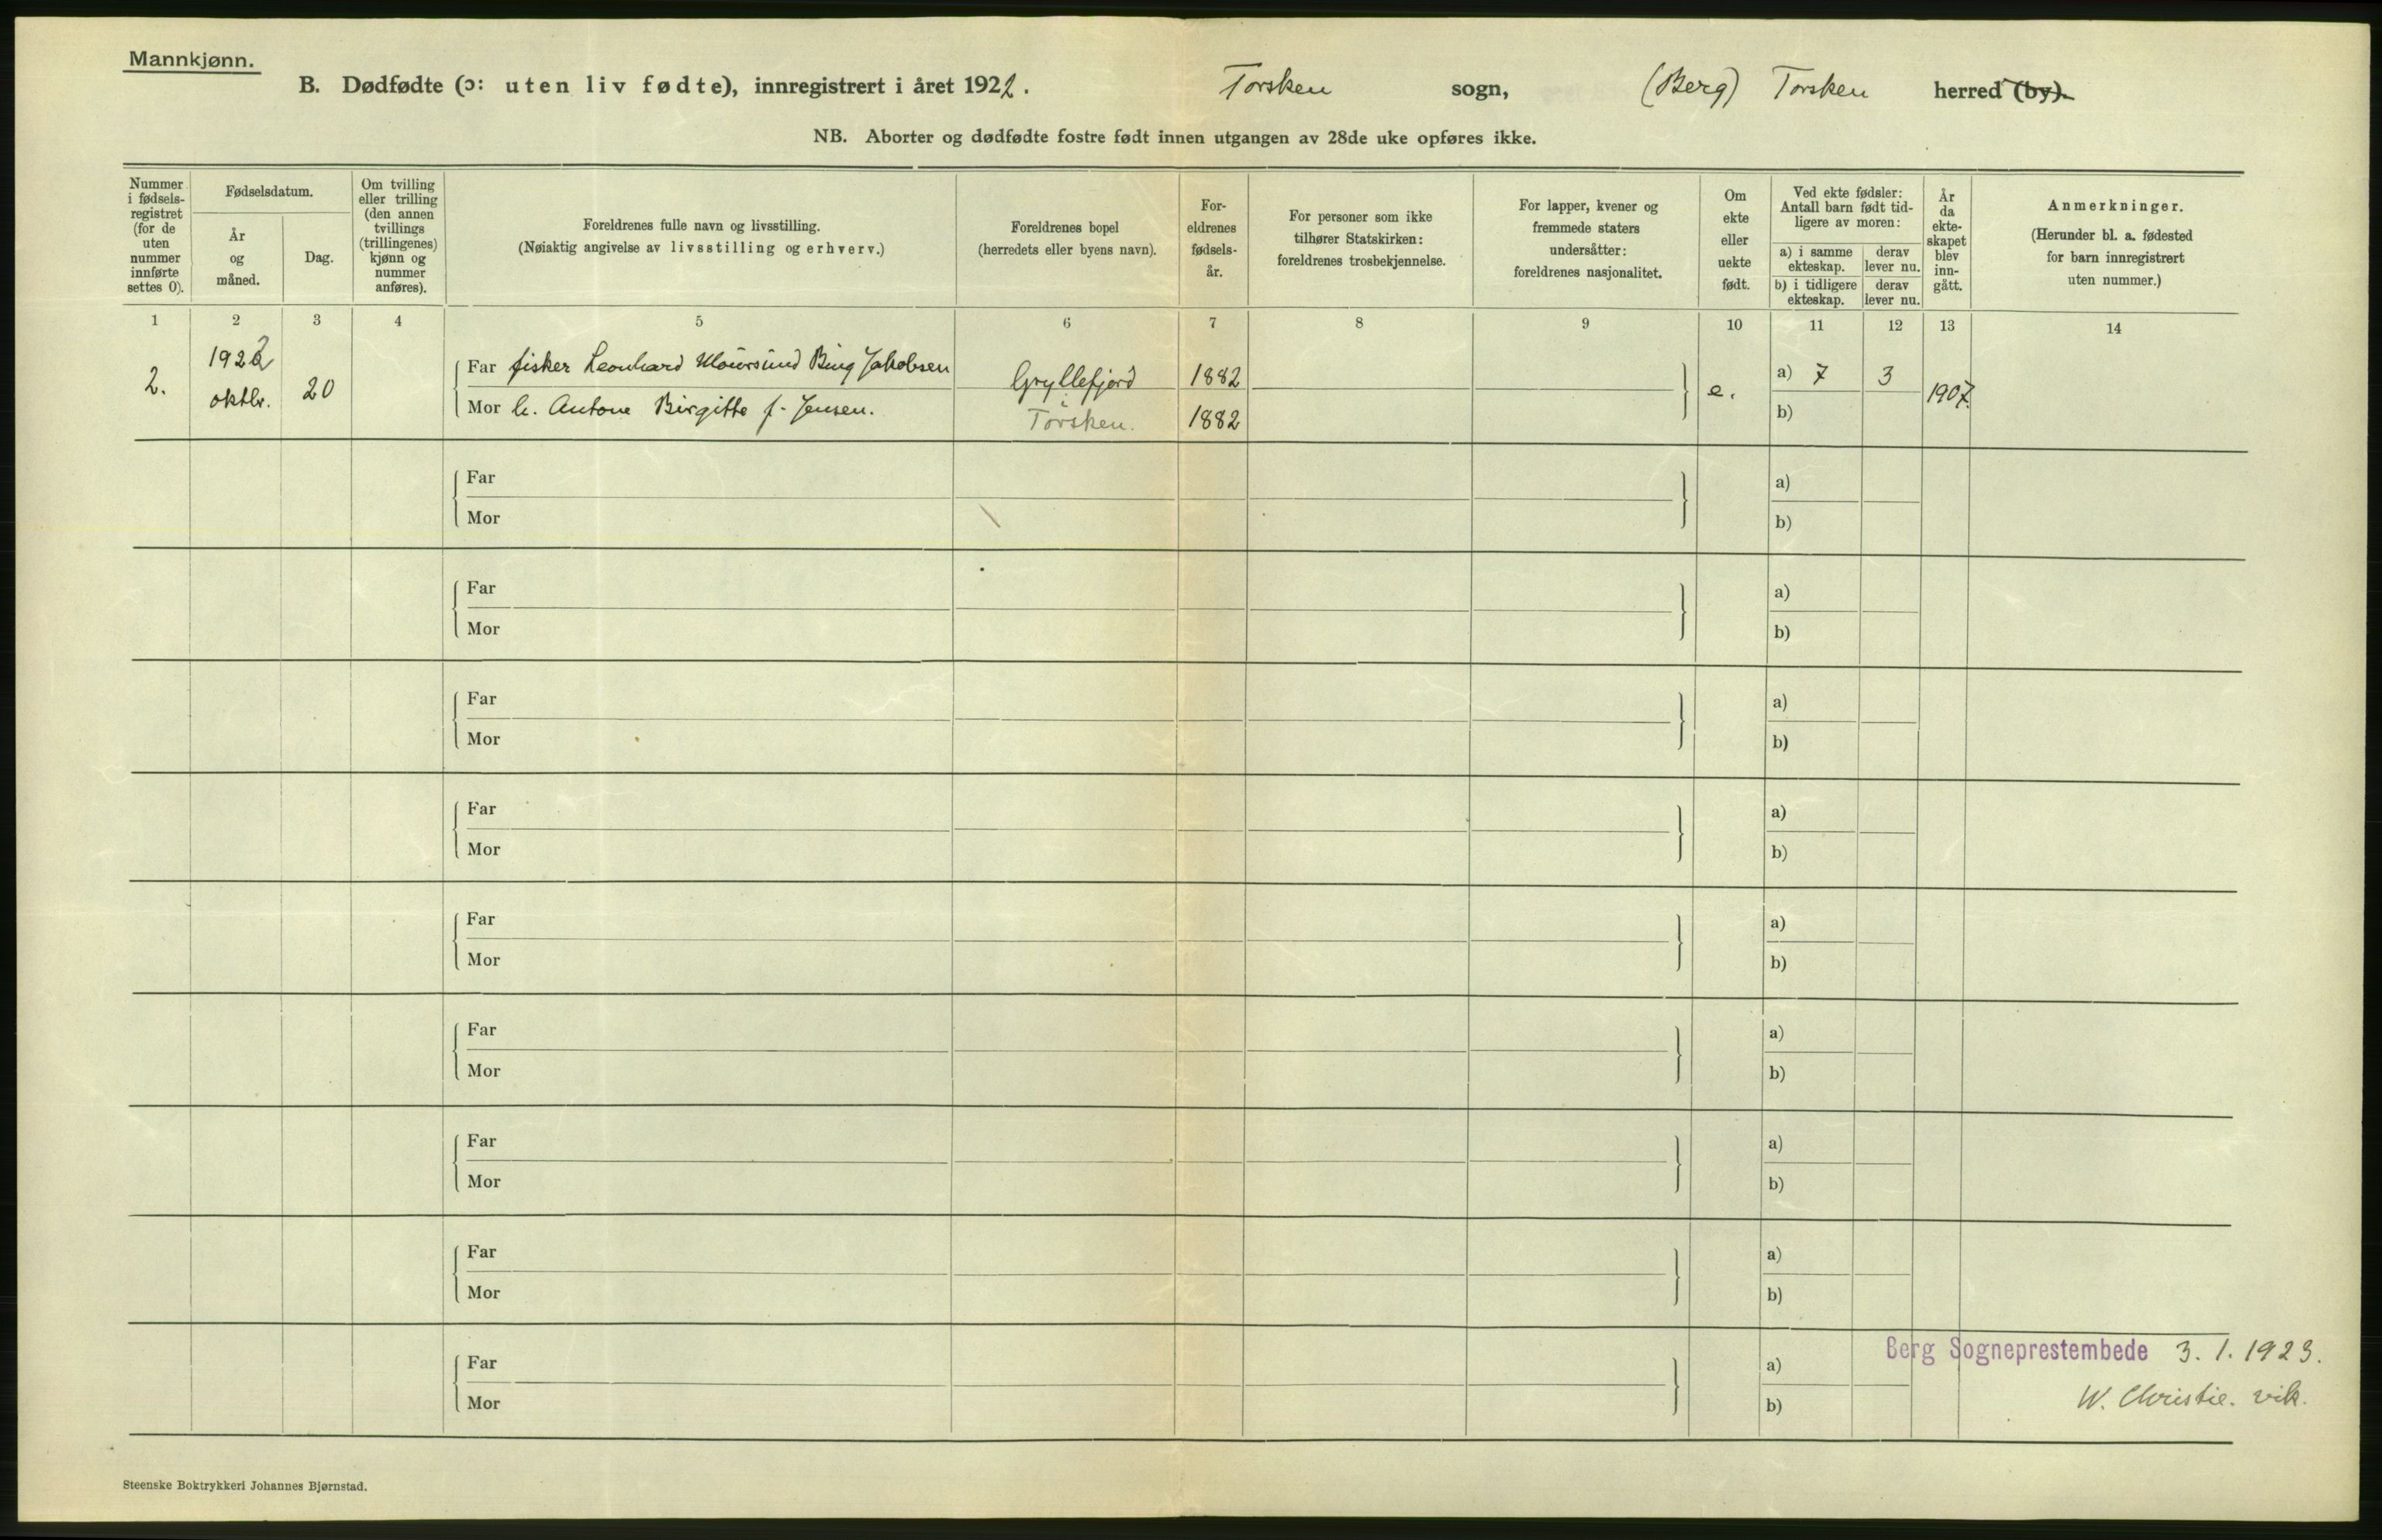 Mannkjønn.
B. Dødfødte (ɔ: uten liv fødte), innregistrert i året 1922. Torsken sogn, (Berg) Torsken herred (by).
NB. Aborter og dødfødte fostre født innen utgangen av 28de uke opføres ikke.
Nummer i fødsels-registret (for de uten nummer innførte settes 0).
Fødselsdatum.
År og måned.
Dag.
Om tvilling eller trilling (den annen tvillings (trillingenes) kjønn og nummer anføres).
Foreldrenes fulle navn og livsstilling.
(Nøiaktig angivelse av livsstilling og erhverv.)
Foreldrenes bopel
(herredets eller byens navn).
For-eldrenes fødsels-år.
For personer som ikke tilhører Statskirken: foreldrenes trosbekjennelse.
For lapper, kvener og fremmede staters undersåtter: foreldrenes nasjonalitet.
Om ekte eller uekte født.
Ved ekte fødsler: Antall barn født tid-ligere av moren:
a) i samme ekteskap.
derav lever nu.
b) i tidligere ekteskap.
derav lever nu.
År da ekte-skapet blev inn-gått.
Anmerkninger.
(Herunder bl. a. fødested for barn innregistrert uten nummer.)
1 2 3 4 5 6 7 8 9 10 11 12 13 14
2. 1922 oktbr. 20
Far fisker Leonhard Bing Jakobsen Gryllefjord 1882
Mor h. Antone Birgitte f. Jensen. i Torsken. 1882
e. a) 7 3 1907.
b)
Far a)
Mor b)
Far a)
Mor b)
Far a)
Mor b)
Far a)
Mor b)
Far a)
Mor b)
Far a)
Mor b)
Far a)
Mor b)
Far a)
Mor b)
Far a)
Mor b)
Berg Sogneprestembede 3. 1. 1923.
W. Christie. vik.
Steenske Boktrykkeri Johannes Bjørnstad.